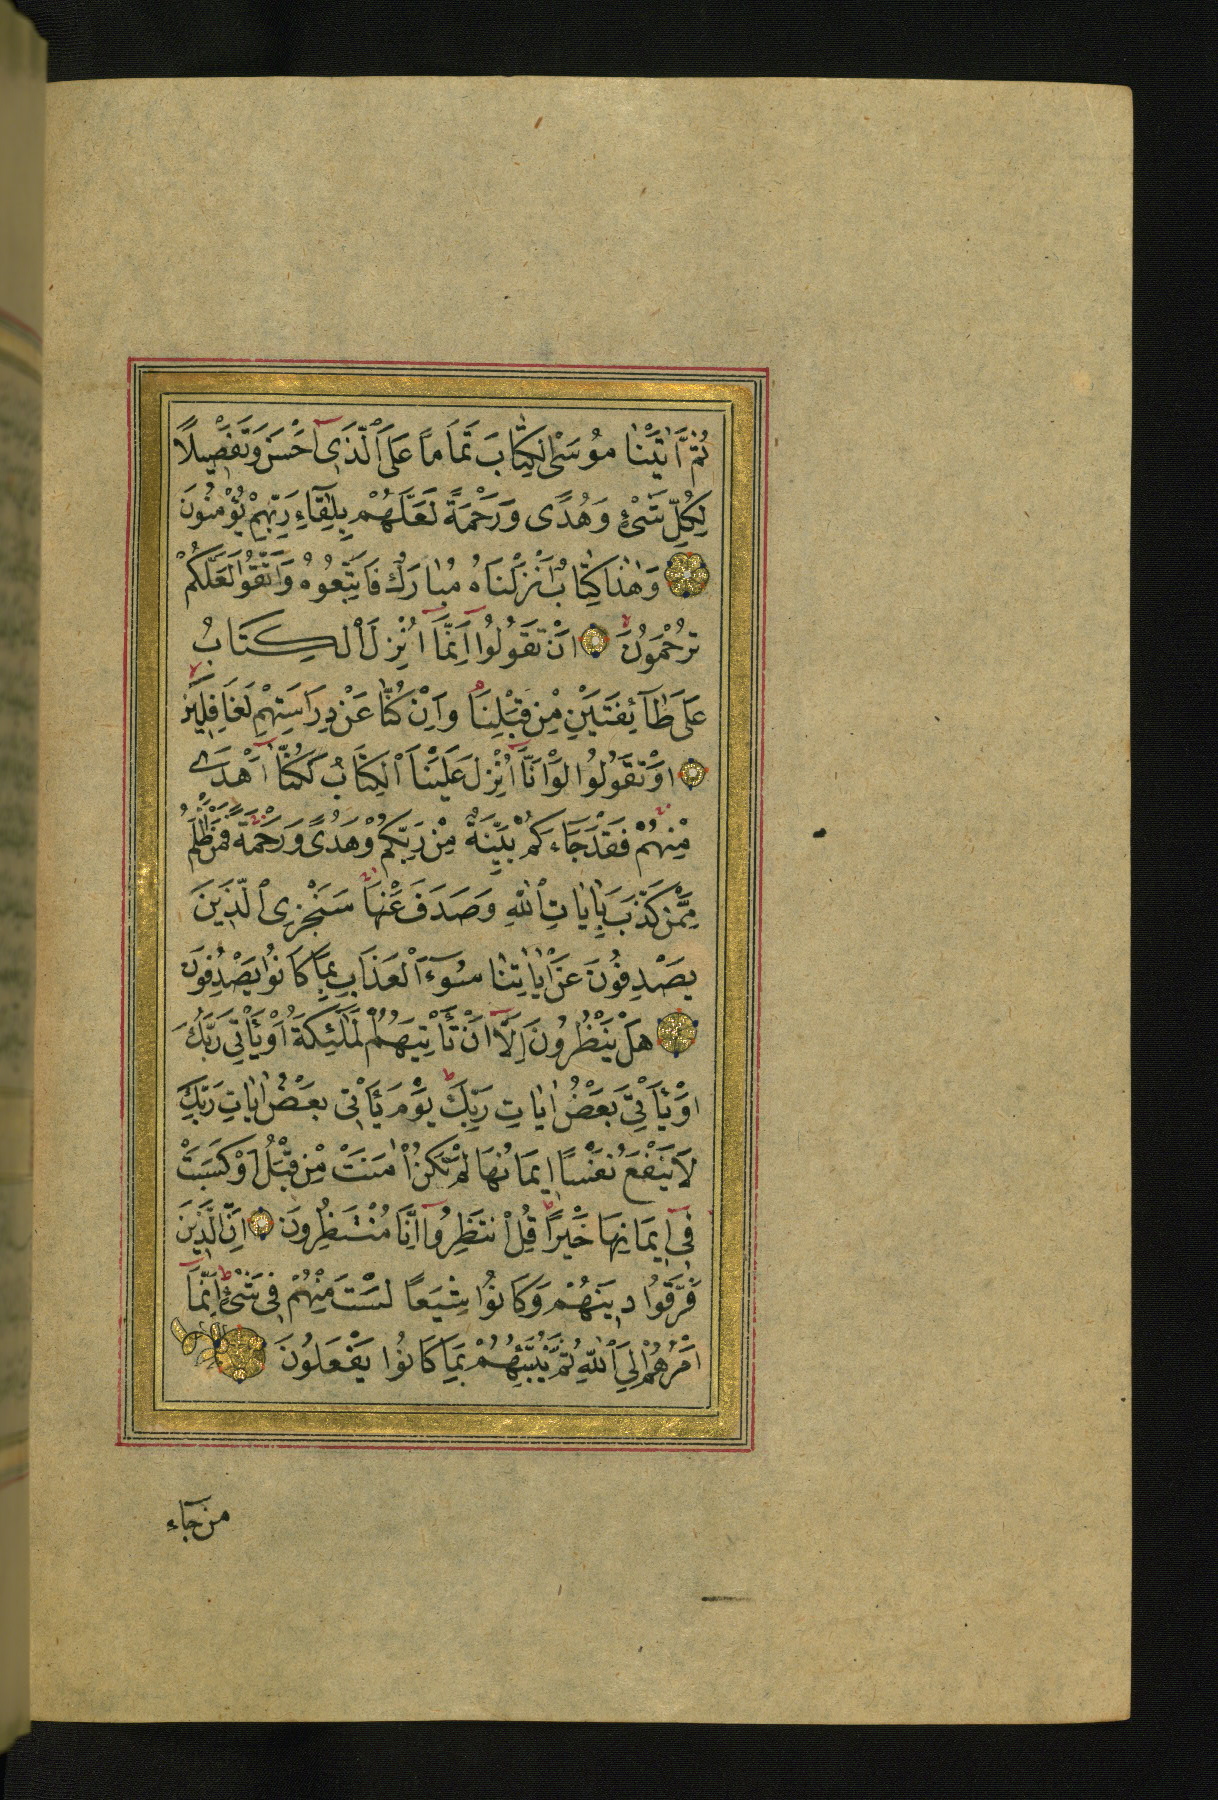 ثُمَّ اٰتَيْنَا مُوسَى الْكِتَابَ تَمَامًا عَلَى الَّذٖى اَحْسَنَ وَتَفْصٖيلًا
لِكُلِّ شَىْءٍ وَهُدًى وَرَحْمَةً لَعَلَّهُمْ بِلِقَاءِ رَبِّهِمْ يُؤْمِنُونَ
وَهٰذَا كِتَابٌ اَنْزَلْنَاهُ مُبَارَكٌ فَاتَّبِعُوهُ وَاتَّقُوا لَعَلَّكُمْ
تُرْحَمُونَ اَنْ تَقُولُوا اِنَّمَا اُنْزِلَ الْكِتَابُ
عَلٰى طَآئِفَتَيْنِ مِنْ قَبْلِنَا وَاِنْ كُنَّا عَنْ دِرَاسَتِهِمْ لَغَافِلٖينَ
اَوْ تَقُولُوا لَوْ اَنَّا اُنْزِلَ عَلَيْنَا الْكِتَابُ لَكُنَّا اَهْدٰى
مِنْهُمْ فَقَدْ جَاءَكُمْ بَيِّنَةٌ مِنْ رَبِّكُمْ وَهُدًى وَرَحْمَةٌ فَمَنْ اَظْلَمُ
مِمَّنْ كَذَّبَ بِاٰيَاتِ اللّٰهِ وَصَدَفَ عَنْهَا سَنَجْزِى الَّذٖينَ
يَصْدِفُونَ عَنْ اٰيَاتِنَا سُوءَ الْعَذَابِ بِمَا كَانُوا يَصْدِفُونَ
هَلْ يَنْظُرُونَ اِلَّا اَنْ تَأْتِيَهُمُ الْمَلٰئِكَةُ اَوْ يَأْتِىَ رَبُّكَ
اَوْ يَأْتِىَ بَعْضُ اٰيَاتِ رَبِّكَ يَوْمَ يَأْتٖى بَعْضُ اٰيَاتِ رَبِّكَ
لَا يَنْفَعُ نَفْسًا اٖيمَانُهَا لَمْ تَكُنْ اٰمَنَتْ مِنْ قَبْلُ اَوْ كَسَبَتْ
فٖى اٖيمَانِهَا خَيْرًا قُلِ انْتَظِرُوا اِنَّا مُنْتَظِرُونَ اِنَّ الَّذٖينَ
فَرَّقُوا دٖينَهُمْ وَكَانُوا شِيَعًا لَسْتَ مِنْهُمْ فٖى شَىْءٍ اِنَّمَا
اَمْرُهُمْ اِلَى اللّٰهِ ثُمَّ يُنَبِّئُهُمْ بِمَا كَانُوا يَفْعَلُونَ
من جآء